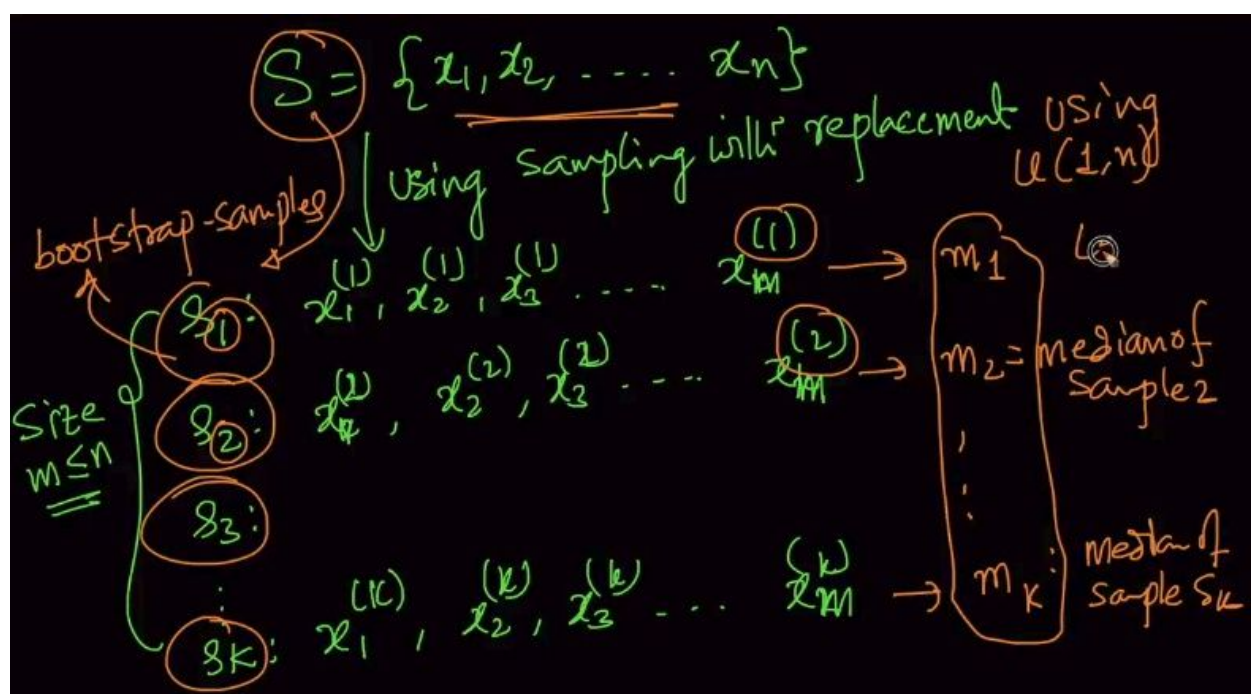 S = {x₁, x₂, ..... xₙ}
using sampling with replacement using
U(1,n)
bootstrap-samples
s₁: x₁⁽¹⁾, x₂⁽¹⁾, x₃⁽¹⁾ ..... xₘ⁽¹⁾ → m₁
s₂: x₁⁽²⁾, x₂⁽²⁾, x₃⁽²⁾ .... xₘ⁽²⁾ → m₂ = median of
sample 2
Size
m ≤ n
s₃:
⋮
sₖ: x₁⁽ᵏ⁾, x₂⁽ᵏ⁾, x₃⁽ᵏ⁾ .... xₘ⁽ᵏ⁾ → mₖ: median of
sample Sₖ